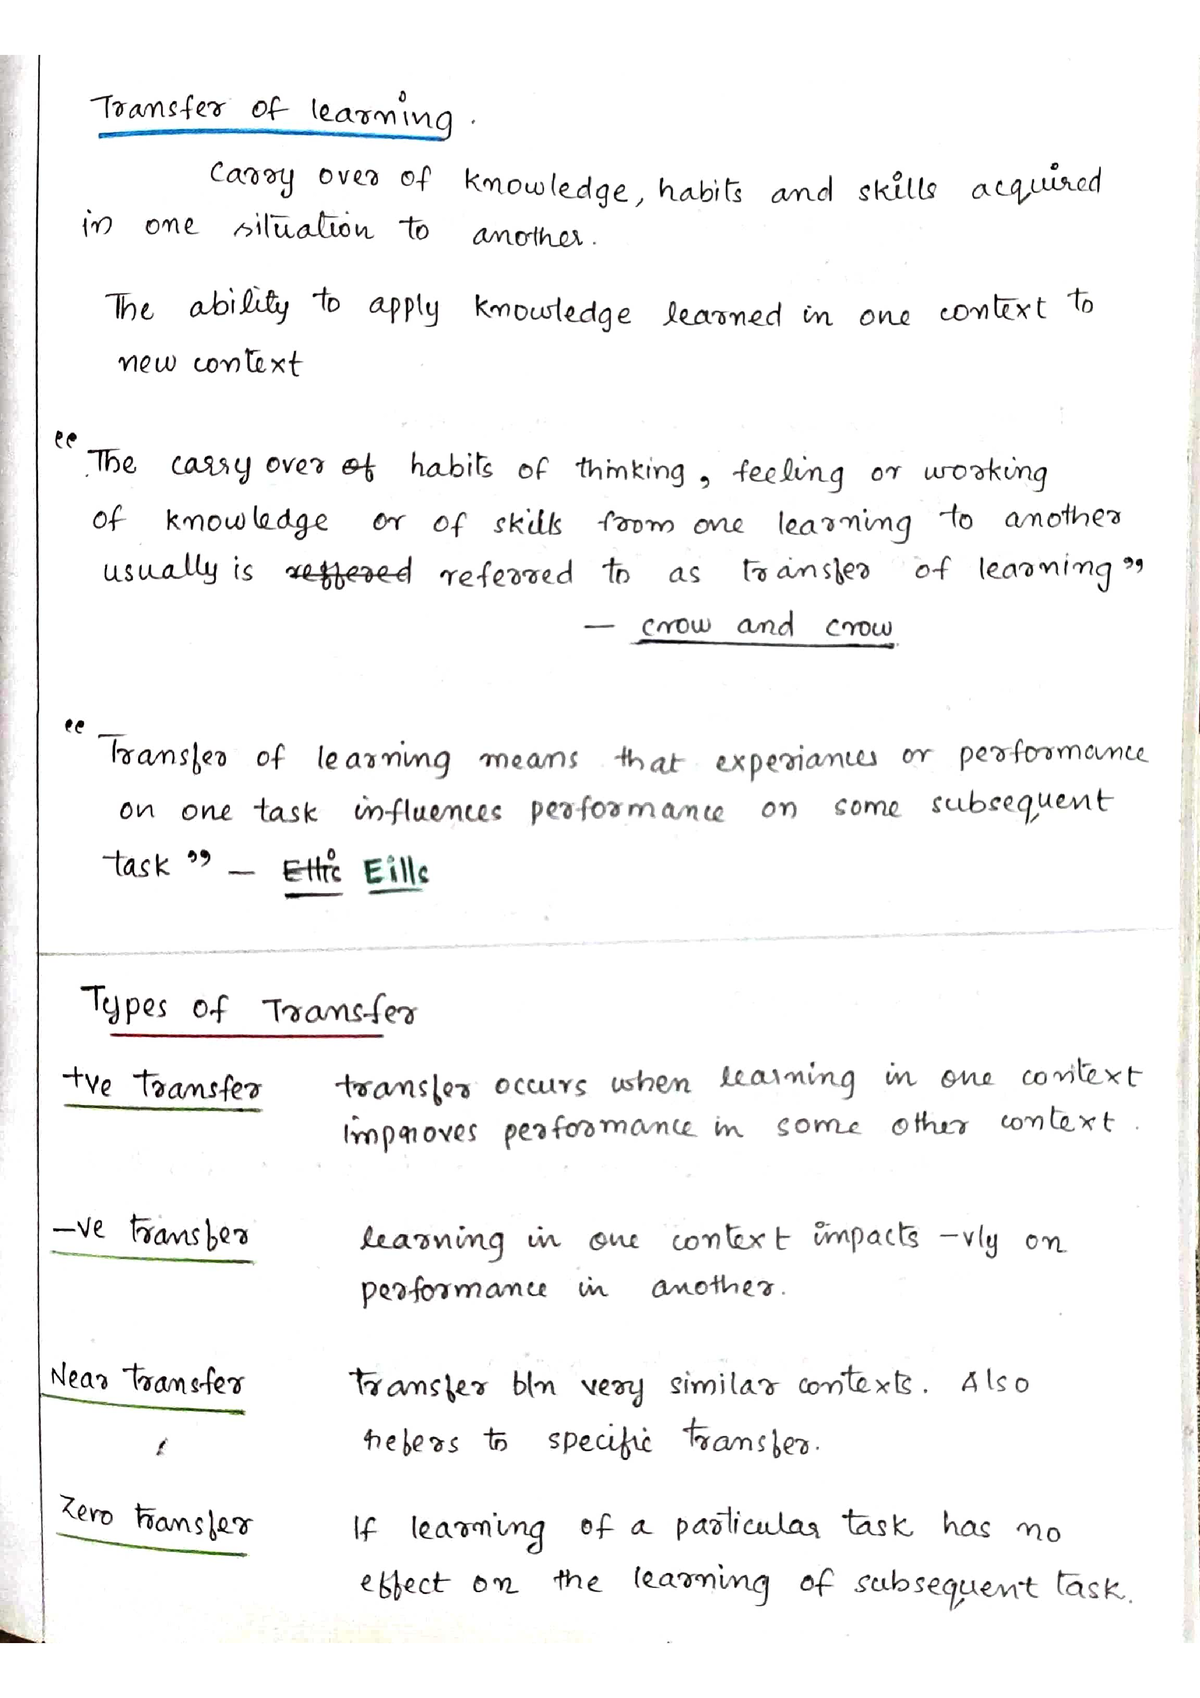 Transfer of learning.
Carry over of knowledge, habits and skills acquired
in one situation to another.
The ability to apply knowledge learned in one context to
new context
"The carry over of habits of thinking, feeling or working
of knowledge or of skills from one learning to another
usually is reffered referred to as transfer of learning"
— crow and crow
"Transfer of learning means that experiances or performance
on one task influences performance on some subsequent
task" — Eills
Types of Transfer
+ve transfer transfer occurs when learning in one context
improves performance in some other context.
-ve transfer learning in one context impacts -vly on
performance in another.
Near transfer transfer b/n very similar contexts. Also
refers to specific transfer.
Zero transfer If learning of a particular task has no
effect on the learning of subsequent task.